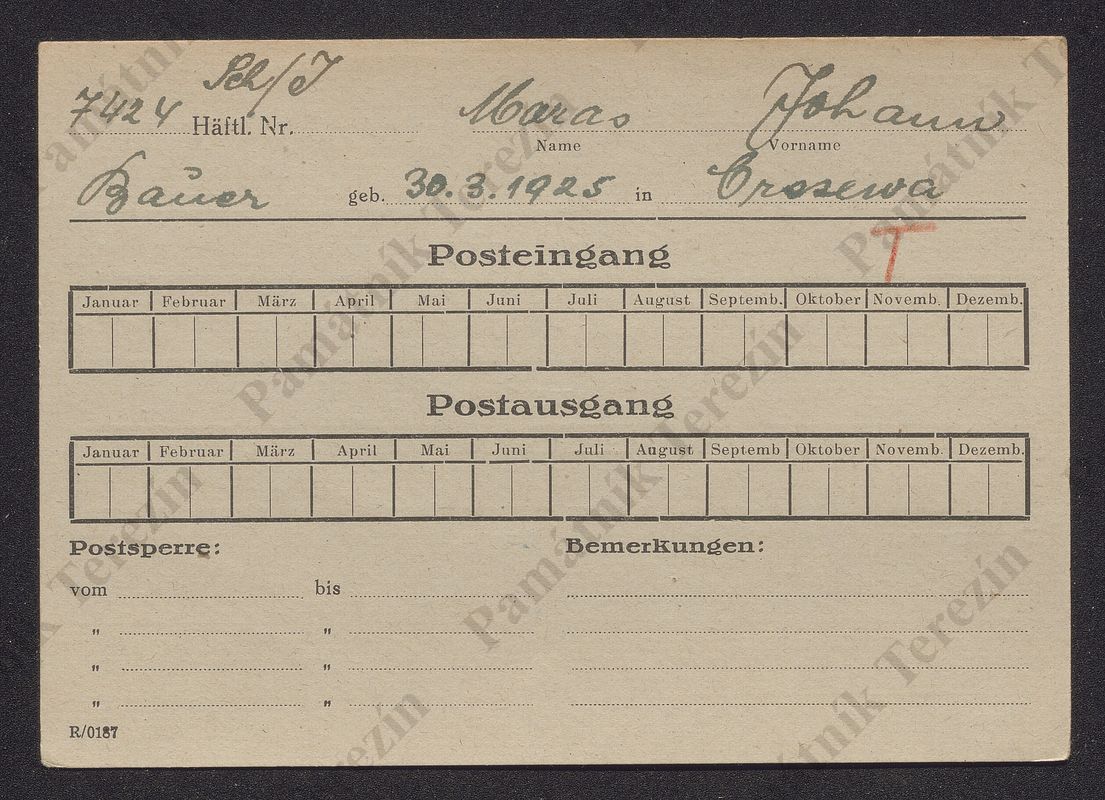 Sch/J
7424 Häftl. Nr. Maras Johann
Name Vorname
Bauer geb. 30.3.1925 in Crosewa
T
Posteingang
Januar Februar März April Mai Juni Juli August Septemb. Oktober Novemb. Dezemb.
Postausgang
Januar Februar März April Mai Juni Juli August Septemb Oktober Novemb. Dezemb.
Postsperre: Bemerkungen:
vom bis
" "
" "
" "
R/0187
Památník Terezín